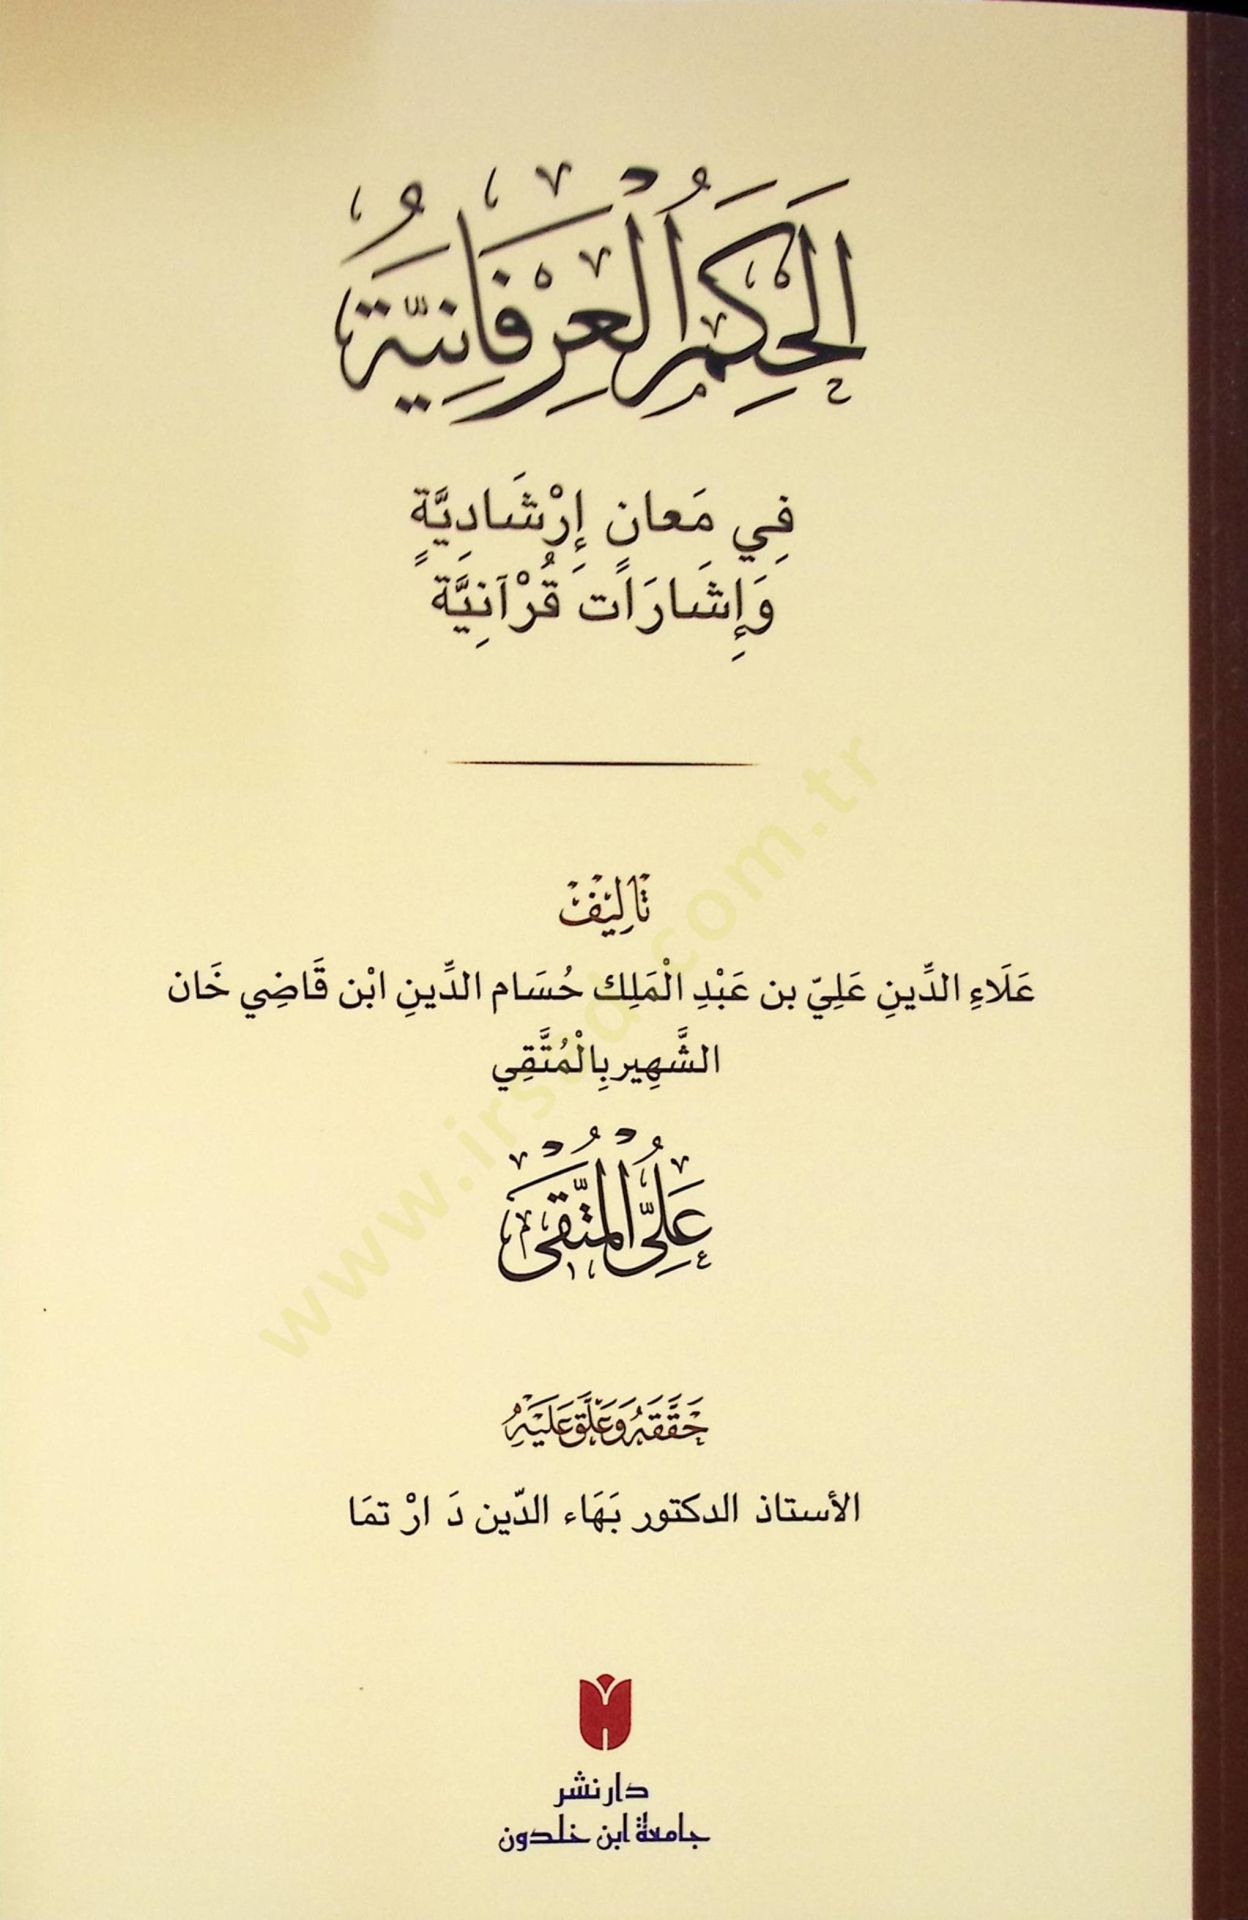 الحِكَمُ الْعِرْفَانِيَّةُ
فِي مَعانٍ إِرْشَادِيَّةٍ
وَإِشَارَاتٍ قُرْآنِيَّةٍ
تَأْلِيْفُ
عَلَاءِ الدِّينِ عَلِيّ بن عَبْدِ الْمَلِك حُسَام الدِّينِ ابْن قَاضِي خَان
الشَّهِير بِالْمُتَّقِي
عَلِيُّ الْمُتَّقِيْ
حَقَّقَهُ وَعَلَّقَ عَلَيْهِ
الأستاذ الدكتور بَهَاء الدّين دَ ارْ تمَا
دار نشر
جامعة ابن خلدون
www.irsad.com.tr